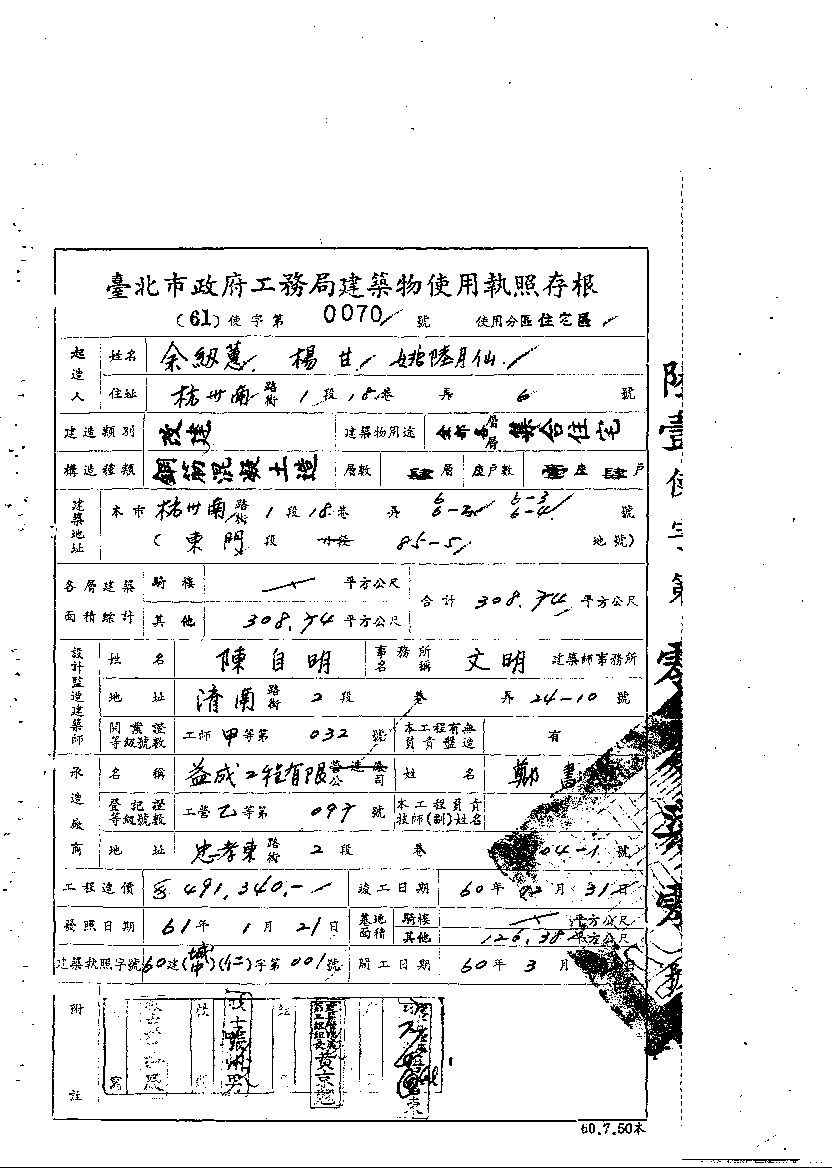 臺北市政府工務局建築物使用執照存根
(61)使字第 0070 號 使用分區 住宅區
起造人 姓名 余級蕙 楊甘 姚陸月仙
住址 杭州南路街 1段 18巷 弄 6 號
建造類別 改建 建築物用途 全部各層層集合住宅
構造種類 鋼筋混凝土造 層數 肆層 座戶數 壹座肆戶
建築地址 本市 杭州南路街 1段 18巷 弄 6 6-2 6-3 6-4 號
(東門 段 小段 85-5 地號)
各層建築面積總計 騎樓 平方公尺 合計 308.74 平方公尺
其他 308.74 平方公尺
設計監造建築師 姓名 陳自明 事務所名稱 文明 建築師事務所
地址 濟南路街 2段 巷 弄 24-10 號
開業證等級號數 工師甲等第 032 號 本工程有無負責監造 有
承造廠商 名稱 益成工程有限營造公司 姓名 鄭書
登記證等級號數 工營乙等第 097 號 本工程負責技師(副)姓名
地址 忠孝東路街 2段 巷 04-1 號
工程造價 491,340.- 竣工日期 60年 月 31日
發照日期 61年 1月 21日 基地面積 騎樓 平方公尺
其他 126.38 平方公尺
建築執照字號 60建(城中)(仁)字第001號 開工日期 60年 3月
附註
陸壹使字第零
60.7.50本